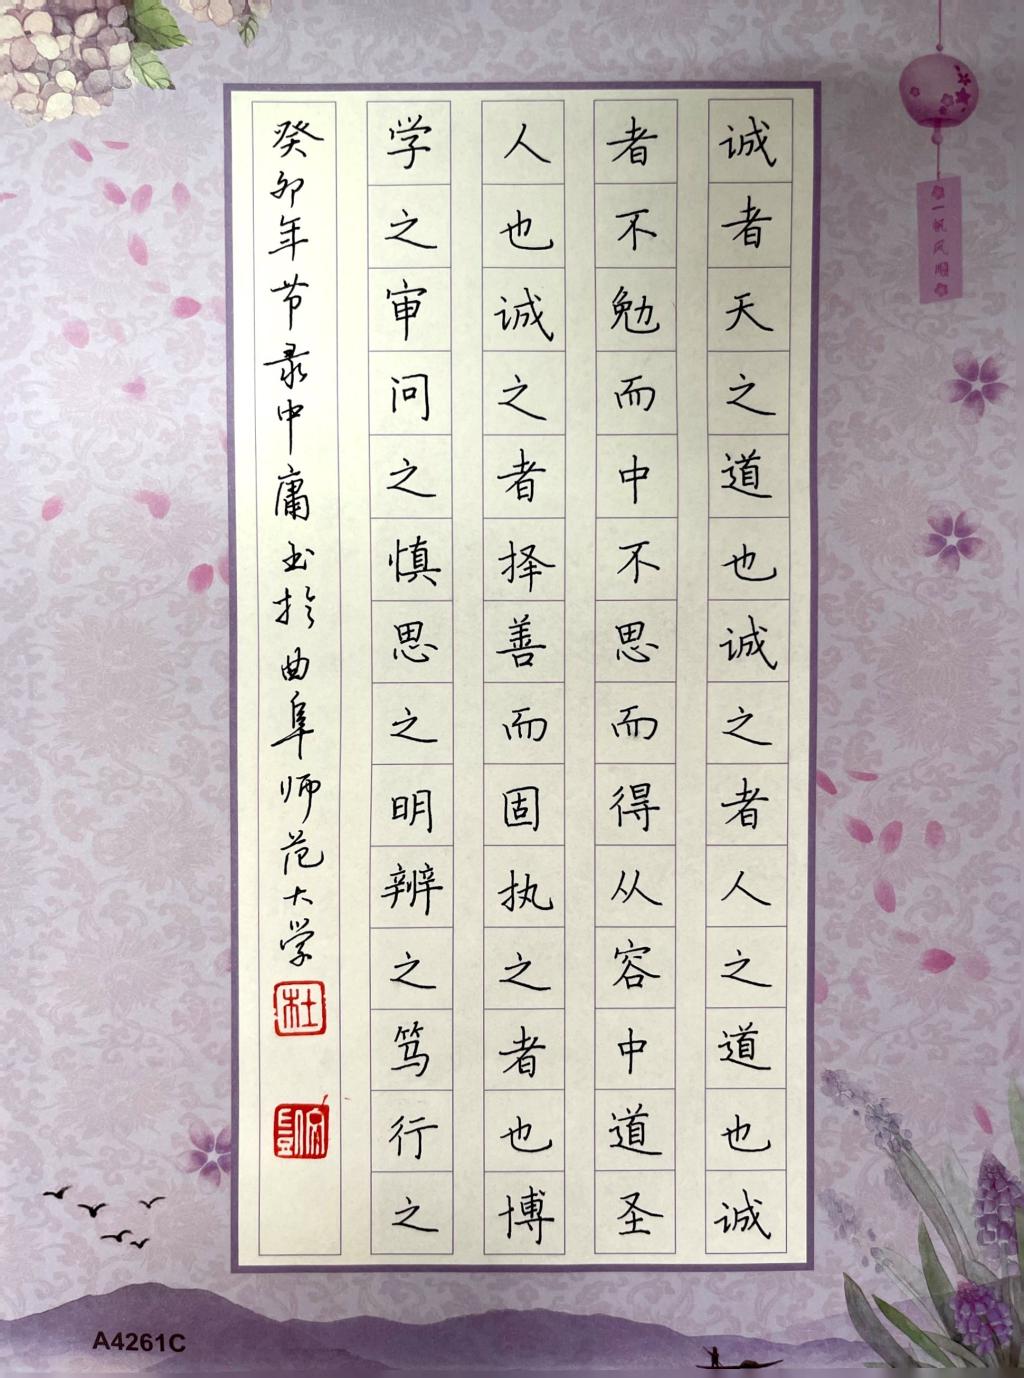 诚者天之道也诚之者人之道也诚
者不勉而中不思而得从容中道圣
人也诚之者择善而固执之者也博
学之审问之慎思之明辨之笃行之
癸卯年节录中庸书于曲阜师范大学
杜
一帆风顺
A4261C